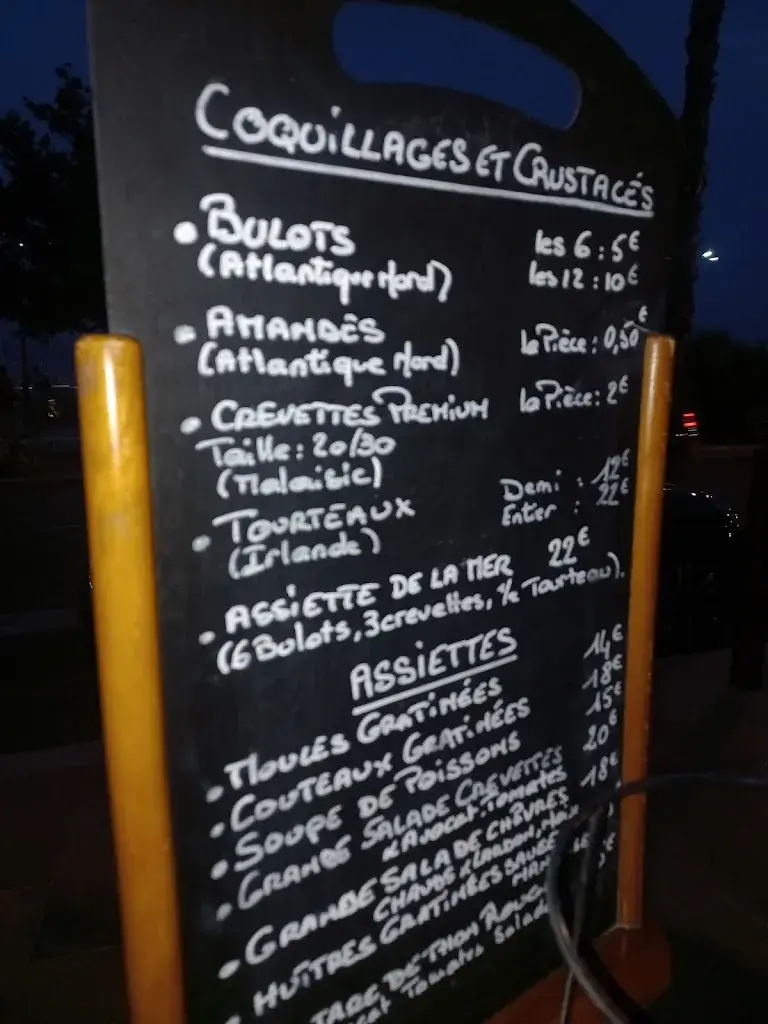 COQUILLAGES ET CRUSTACÉS
• BULOTS les 6 : 5€
(Atlantique Nord) les 12 : 10€
• AMANDES la Pièce : 0,50€
(Atlantique Nord)
• CREVETTES PREMIUM la Pièce : 2€
Taille : 20/30
(Malaisie)
• TOURTEAUX Demi : 12€
(Irlande) Entier : 22€
• ASSIETTE DE LA MER 22€
(6 Bulots, 3 crevettes, ½ Tourteau).
ASSIETTES
• MOULES GRATINÉES 14€
• COUTEAUX GRATINÉES 18€
• SOUPE DE POISSONS 15€
• GRANDE SALADE CREVETTES 20€
& Avocat. Tomates
• GRANDE SALADE CHÈVRES 18€
CHAUDS & LARDON,
• HUÎTRES GRATINÉES SAUCE
TARE DE THON ROUGE
Tomates Salade